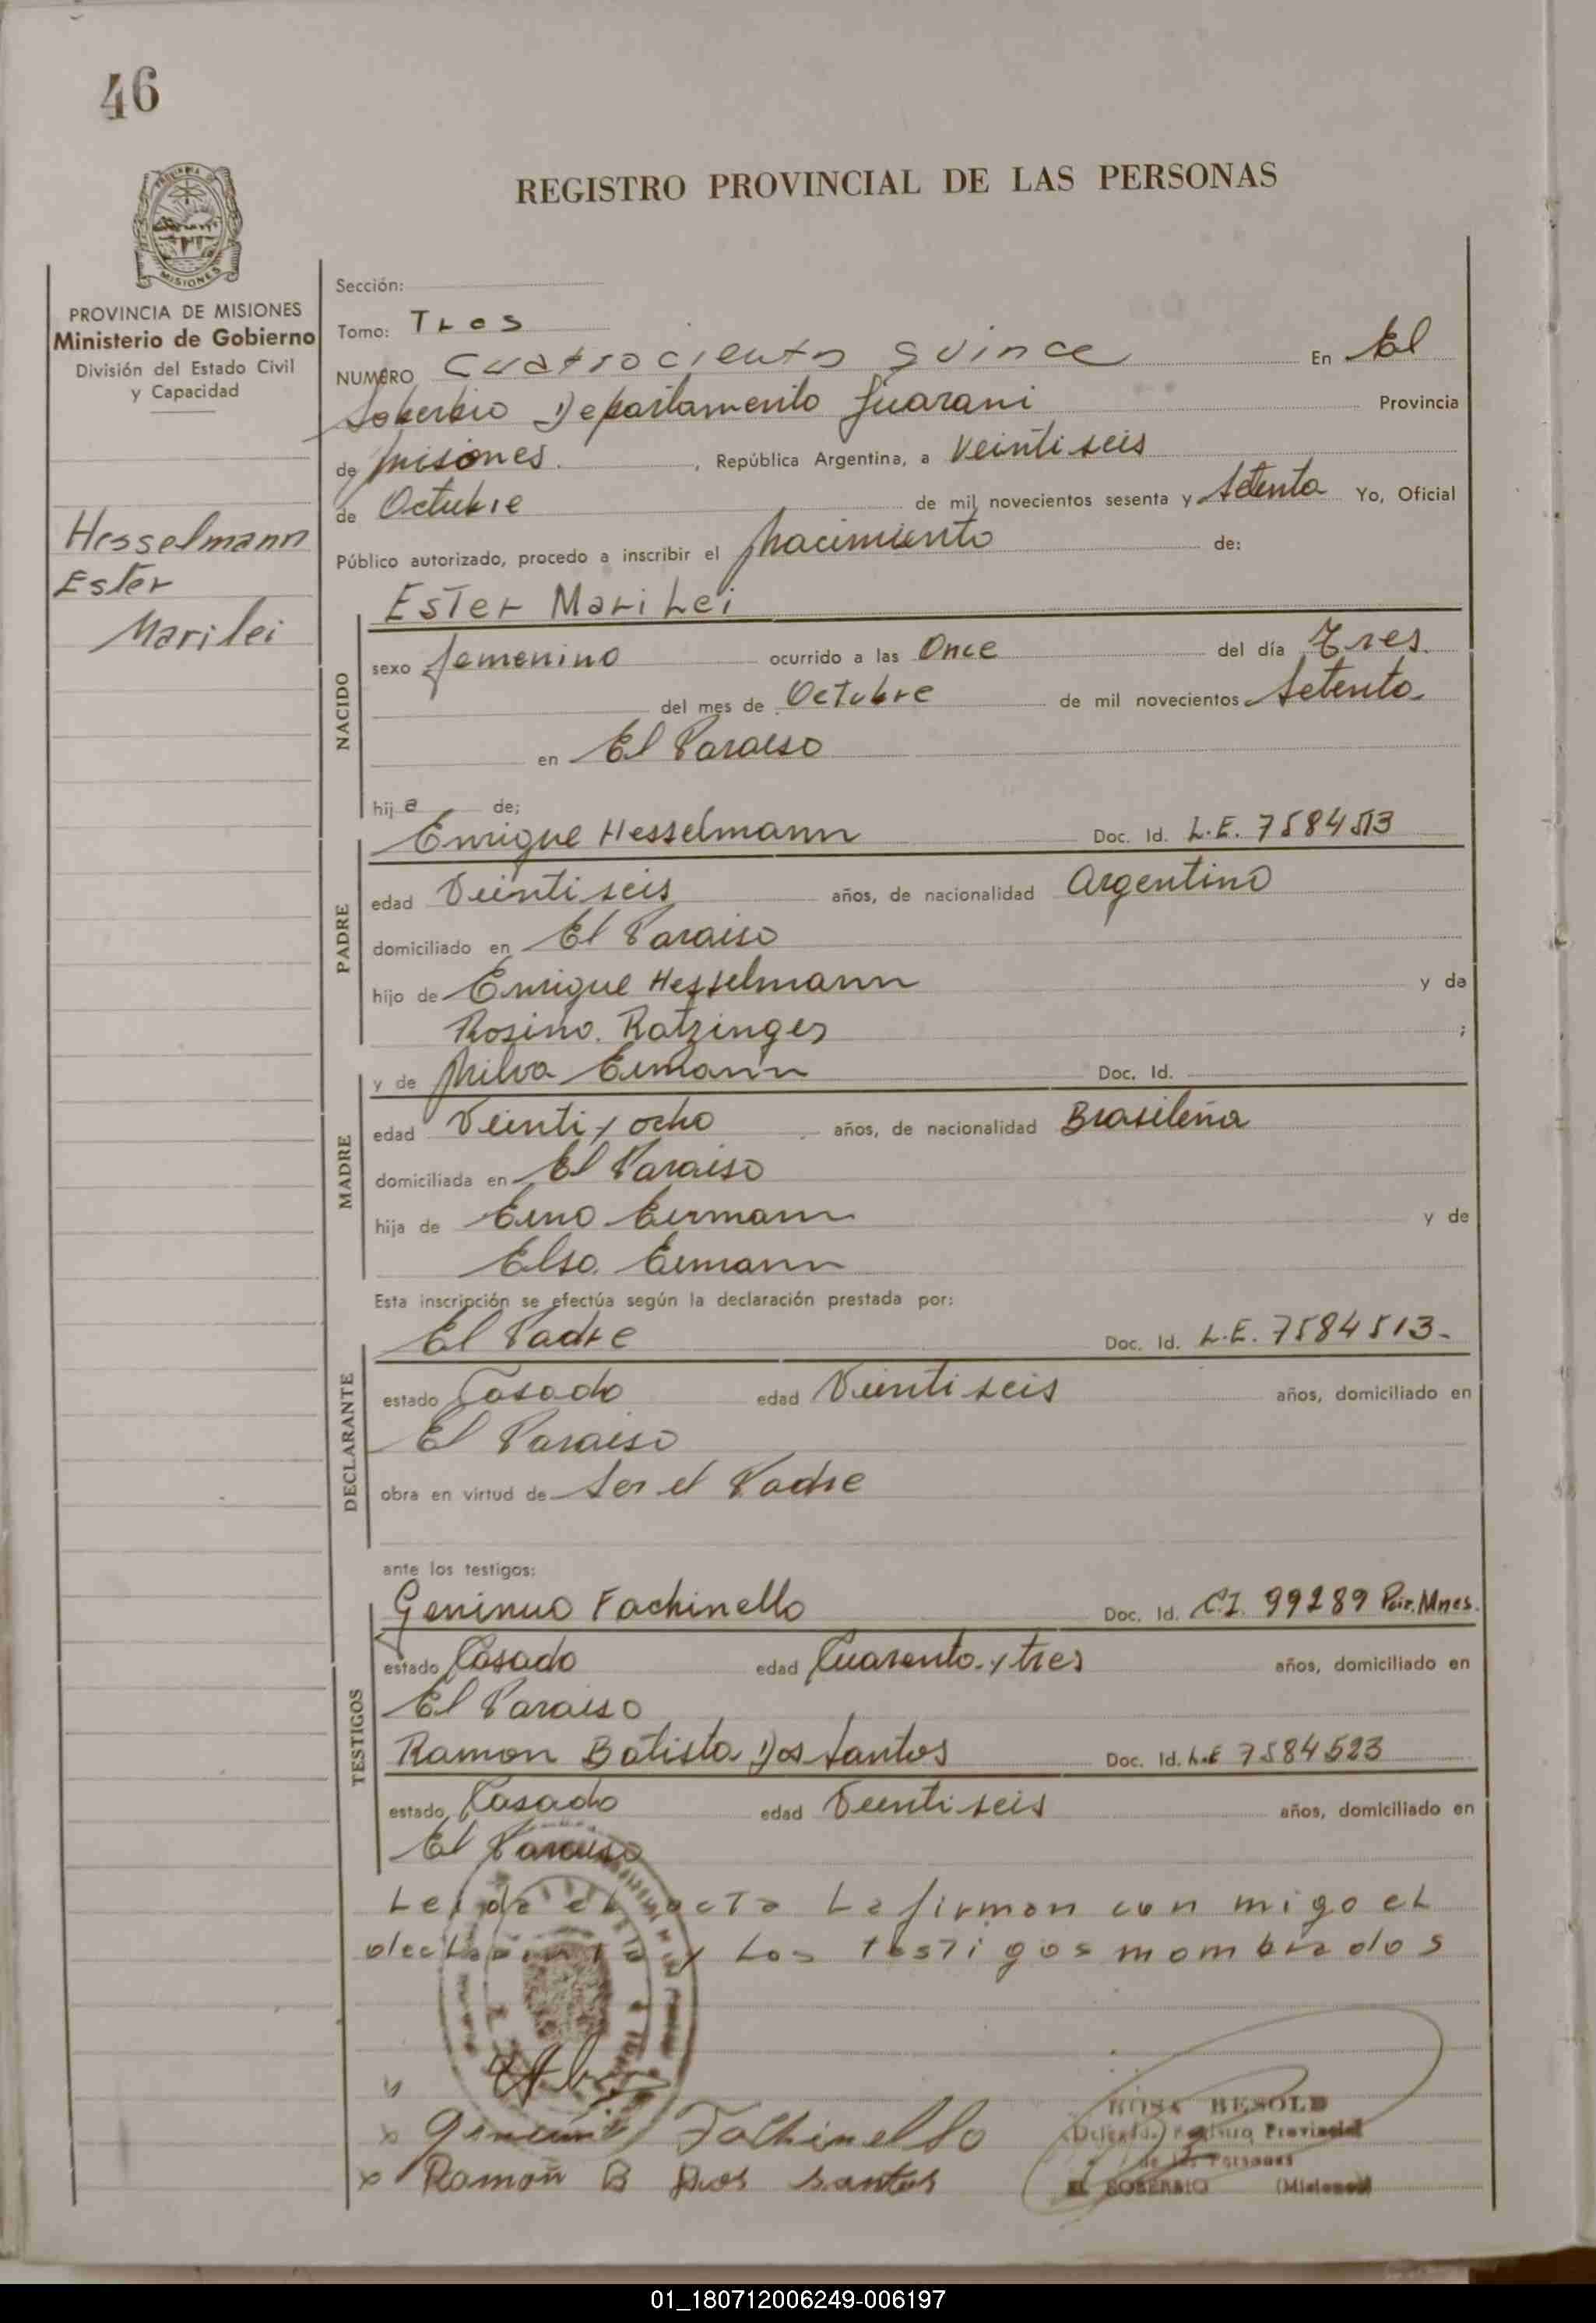 46
REGISTRO PROVINCIAL DE LAS PERSONAS
MISIONES
PROVINCIA DE MISIONES
Ministerio de Gobierno
División del Estado Civil
y Capacidad
Hesselmann
Ester
Marilei
Sección:
Tomo: Tres
NUMERO Cuatrociento quince En El
Soberbio Departamento Guarani Provincia
de Misiones. , República Argentina, a Veinti seis
de Octubre de mil novecientos sesenta y Setenta Yo, Oficial
Público autorizado, procedo a inscribir el Nacimiento de:
Ester MariLei
NACIDO
sexo femenino ocurrido a las Once del día Tres.
del mes de Octubre de mil novecientos Setenta
en El Paraiso
hij a de;
Enrique Hesselmann Doc. Id. L.E. 7584513
PADRE
edad Veinti seis años, de nacionalidad Argentino
domiciliado en El Paraiso
hijo de Enrique Hesselmann y de
Rosina Ratzinger ;
y de Milva Ermann Doc. Id.
MADRE
edad Veinti y ocho años, de nacionalidad Brasileña
domiciliada en El Paraiso
hija de Erno Ermann y de
Elsa Ermann
Esta inscripción se efectúa según la declaración prestada por:
El Padre Doc. Id. L.E. 7584513-
DECLARANTE
estado Casado edad Veinti seis años, domiciliado en
El Paraiso
obra en virtud de Ser el Padre
ante los testigos:
Geninuo Fachinello Doc. Id. C.I. 99289 Mnes.
TESTIGOS
estado Casado edad Cuarenta y tres años, domiciliado en
El Paraiso
Ramon Batista Dos Santos Doc. Id. L.E 7584523
estado Casado edad Veinti seis años, domiciliado en
El Paraiso
Leida el acta La firman con migo el
declarante y Los testigos mombrados
x Fachinello
x Ramon B Dos santos
ROSA BESOLD
Registro Provincial
de las Personas
EL SOBERBIO (Misiones)
01_180712006249-006197